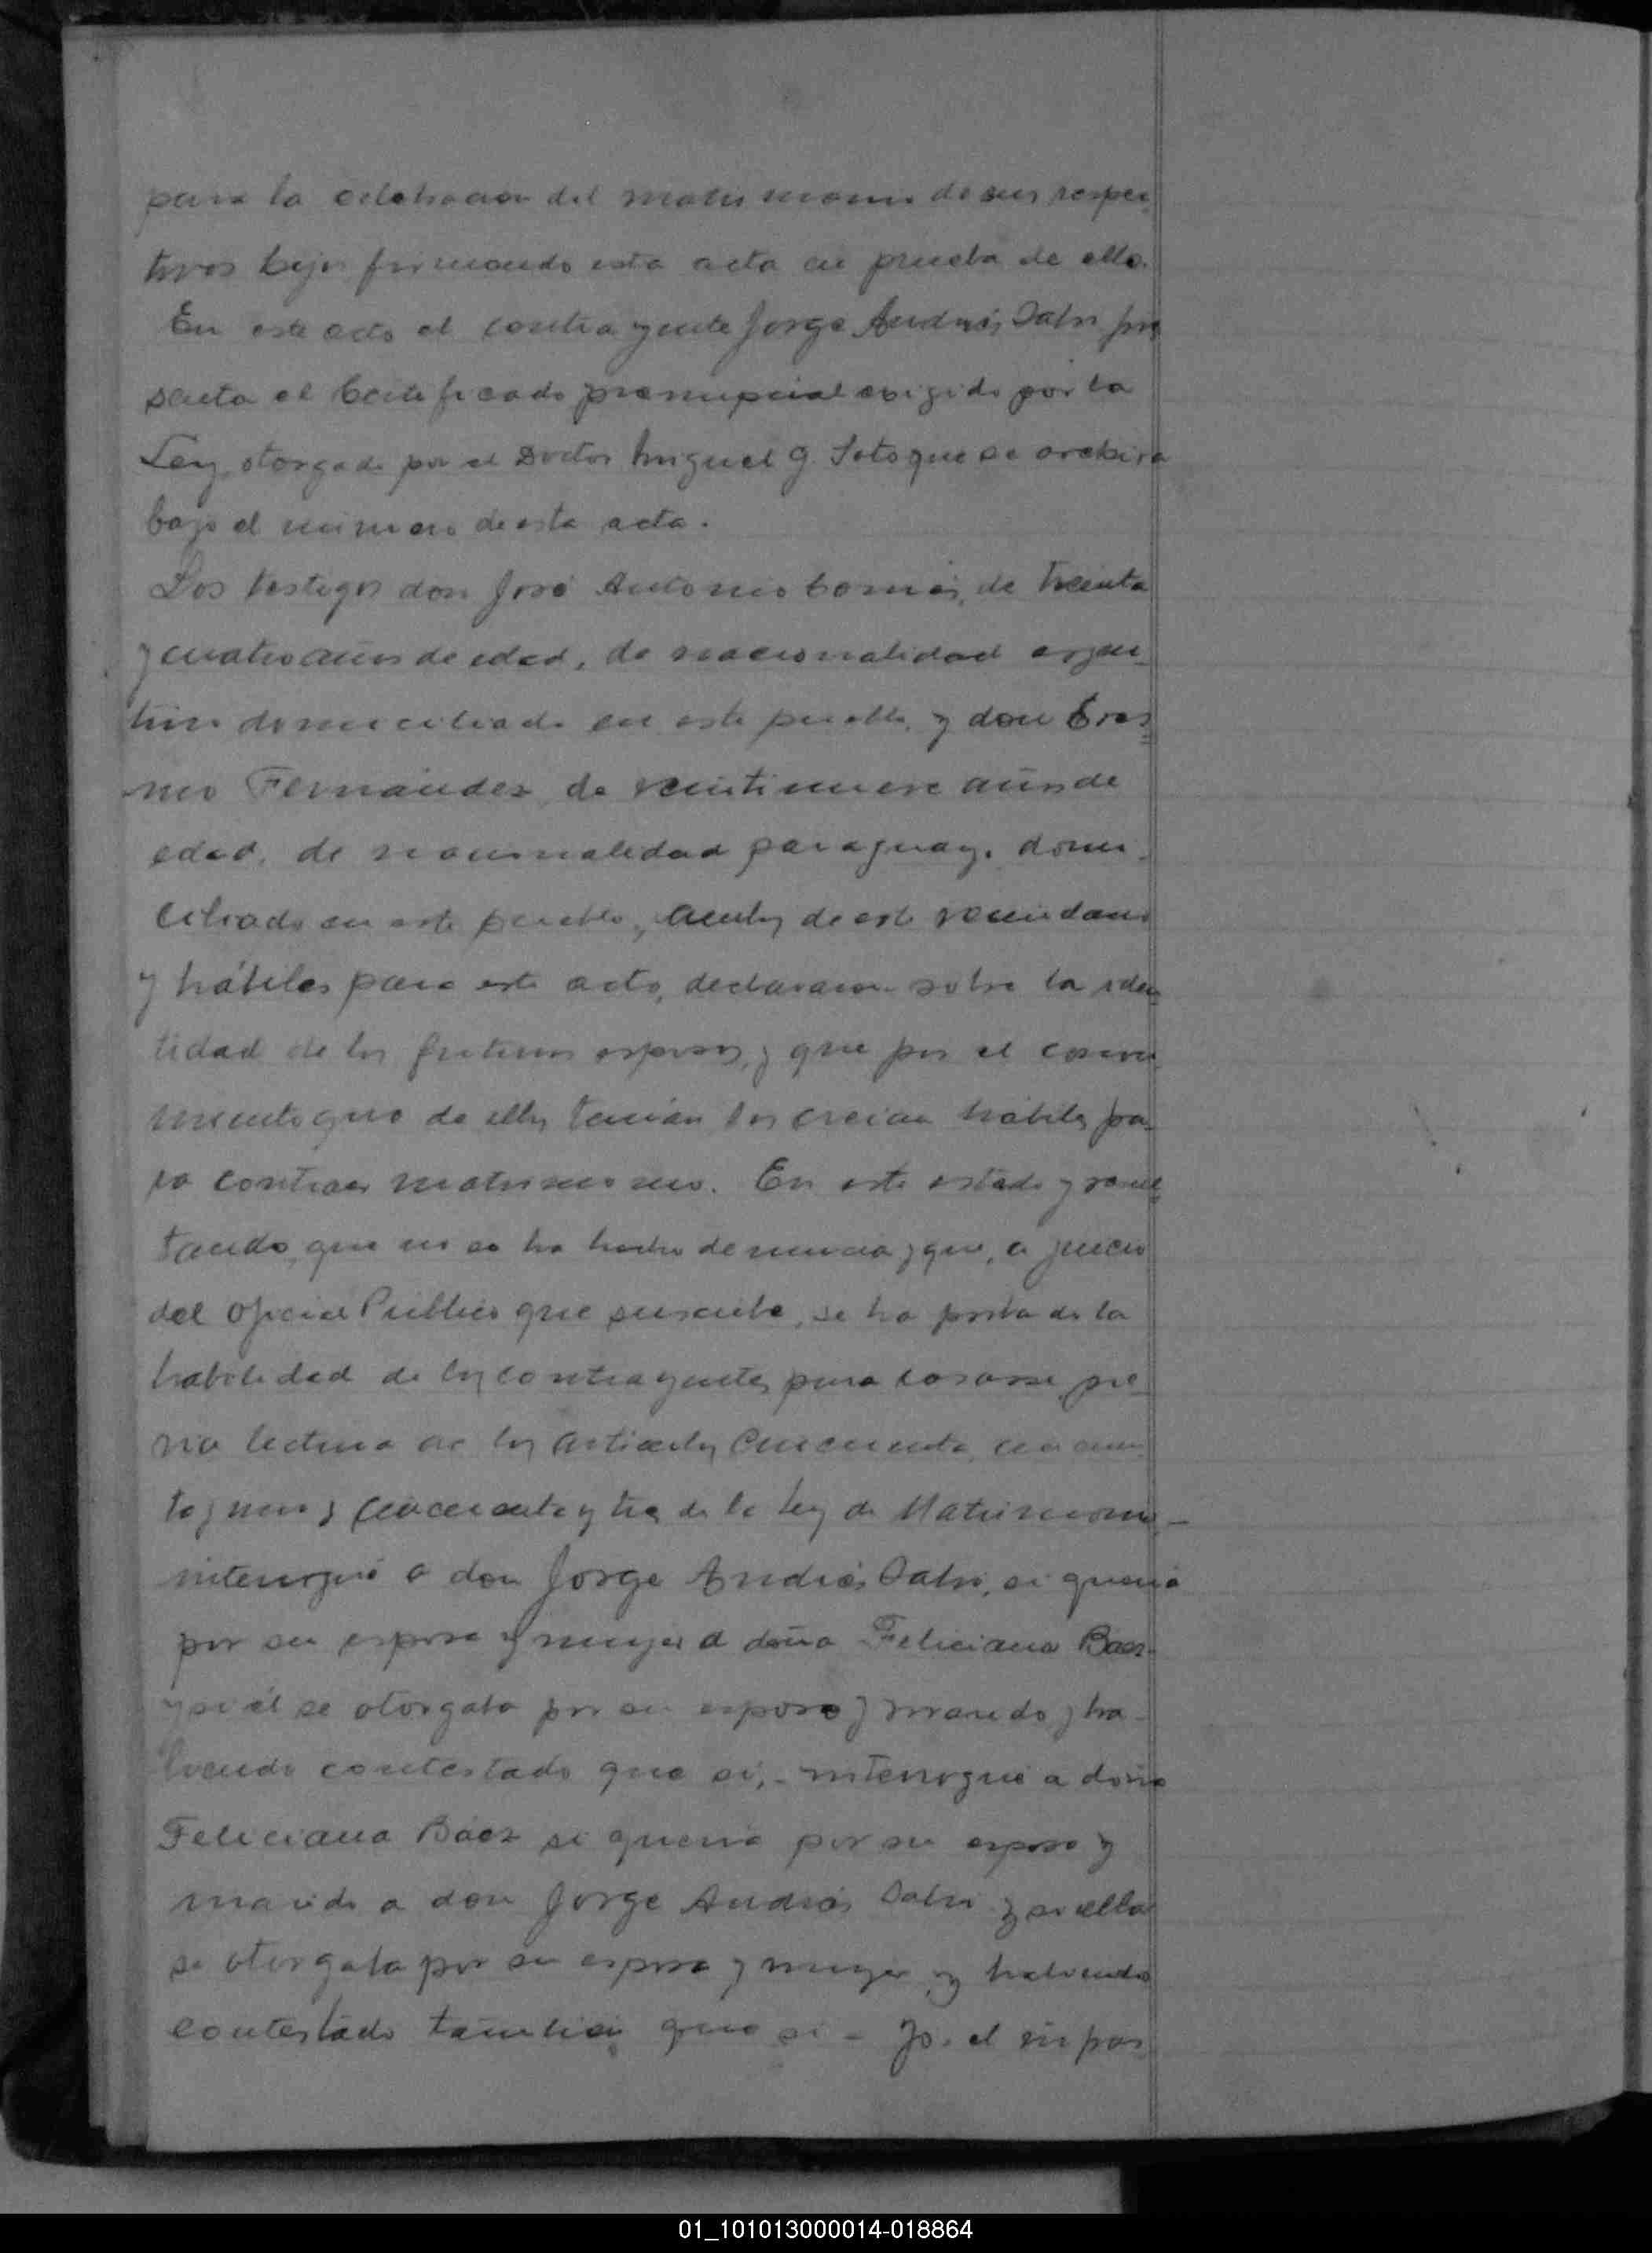 para la celebración del matrimonio de sus respec
tivos hijos firmando esta acta en prueba de ello.
En este acto el contrayente Jorge Andrés pre
senta el Certificado prenupcial exigido por la
Ley, otorgado por el Doctor Miguel G. Soto que se archiva
bajo el número de esta acta.
Los testigos don José Antonio de treinta
y cuatro años de edad, de nacionalidad argen
tino domiciliado en este pueblo, y don Eras
mo Fernández, de veintinueve años de
edad, de nacionalidad paraguay. domi
ciliado en este pueblo, ambos de este vecindario
y hábiles para este acto, declararon sobre la iden
tidad de los futuros esposos, y que por el conoci
miento que de ellos tenían los creían hábiles pa
ra contraer matrimonio. En este estado y resul
tando, que no se ha hecho denuncia y que, a juicio
del Oficial Público que suscribe, se ha probado la
habilidad de los contrayentes para casarse, pre
via lectura de los artículos Cincuenta, cincuen
ta y uno y cincuenta y tres de la Ley de Matrimonio –
interrogué a don Jorge Andrés si quería
por su esposa y mujer a doña Feliciana Báez
y si él se otorgaba por su esposo y marido y ha
biendo contestado que sí, – interrogué a doña
Feliciana Báez si quería por su esposo y
marido a don Jorge Andrés y si ella
se otorgaba por su esposa y mujer y habiendo
contestado también que sí – Yo, el
01_101013000014-018864